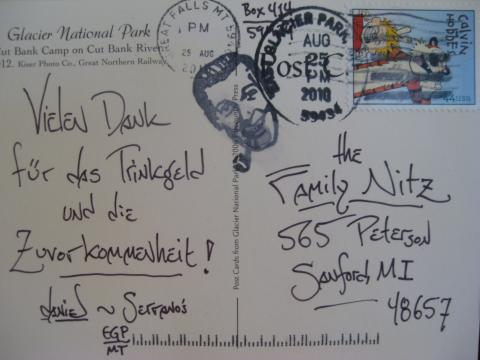 Glacier National Park
Cut Bank Camp on Cut Bank River
1912. Kiser Photo Co., Great Northern Railway
Vielen Dank
für das Trinkgeld
und die
Zuvorkommenheit!
Daniel ~ Serrano's
EGP
MT
GREAT FALLS MT 594
PM
25 AUG
Box 414
EAST GLACIER PARK
AUG
25
PM
2010
59434
USPS
CALVIN
AND HOBBES
44 USA
Post Cards from Glacier National Park
the
Family Nitz
565 Peterson
Sanford MI
48657